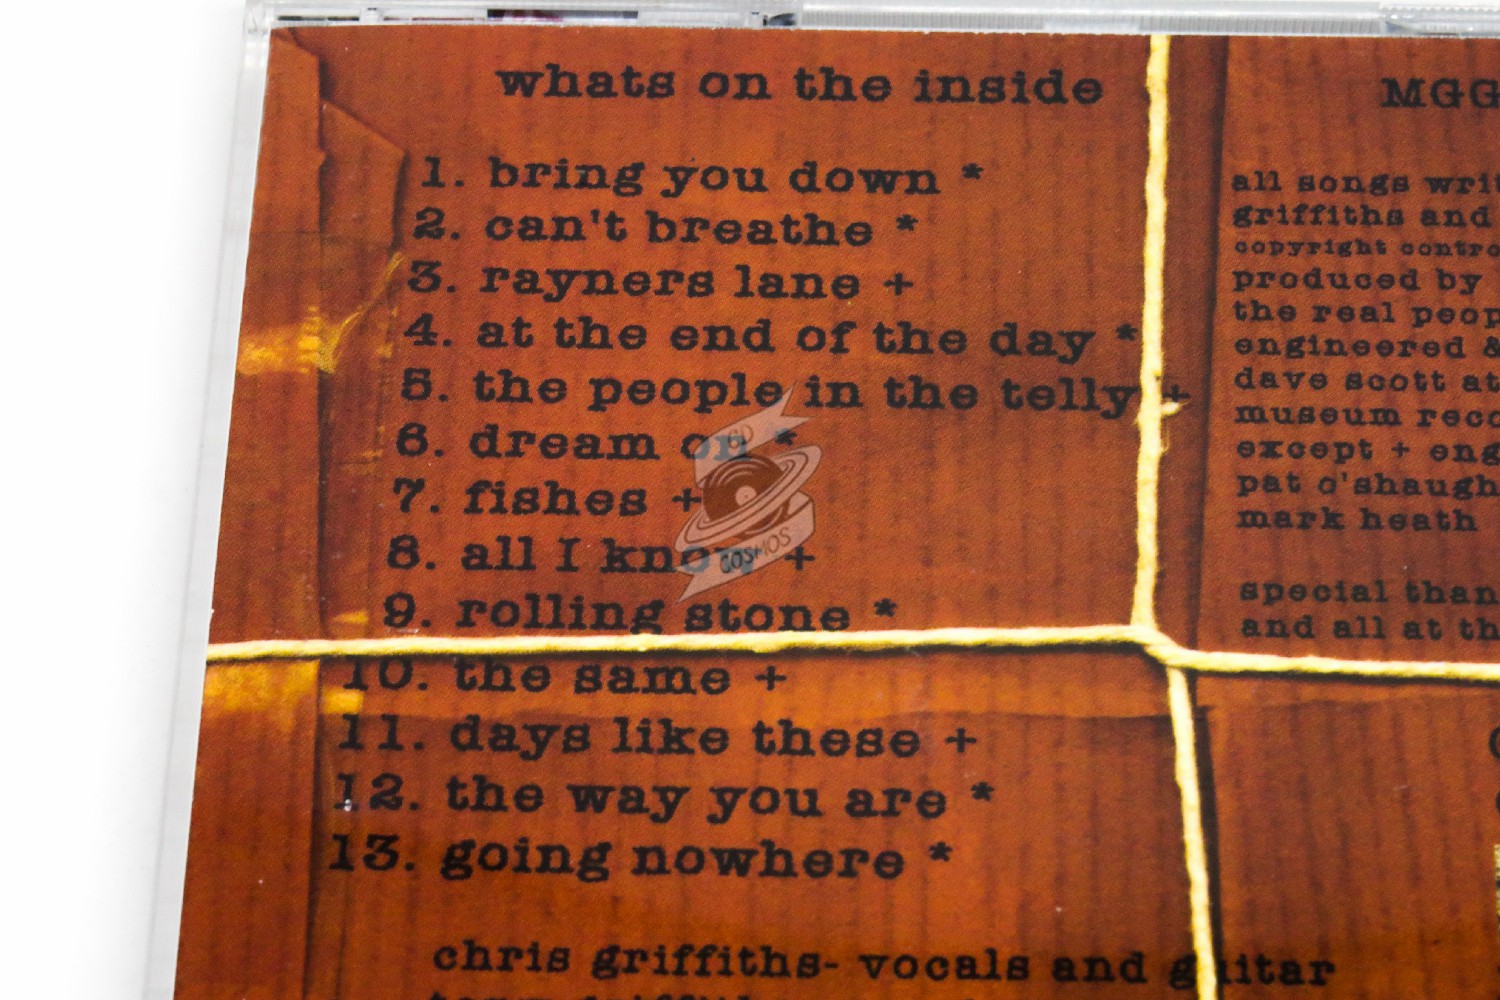 whats on the inside
1. bring you down *
2. can't breathe *
3. rayners lane +
4. at the end of the day *
5. the people in the telly +
6. dream on *
7. fishes +
8. all I know +
9. rolling stone *
10. the same +
11. days like these +
12. the way you are *
13. going nowhere *
chris griffiths- vocals and guitar
MGG
all songs writ
griffiths and
copyright contro
produced by
the real peop
engineered &
dave scott at
museum reco
except + eng
pat o'shaugh
mark heath
special than
and all at th
CD
COSMOS